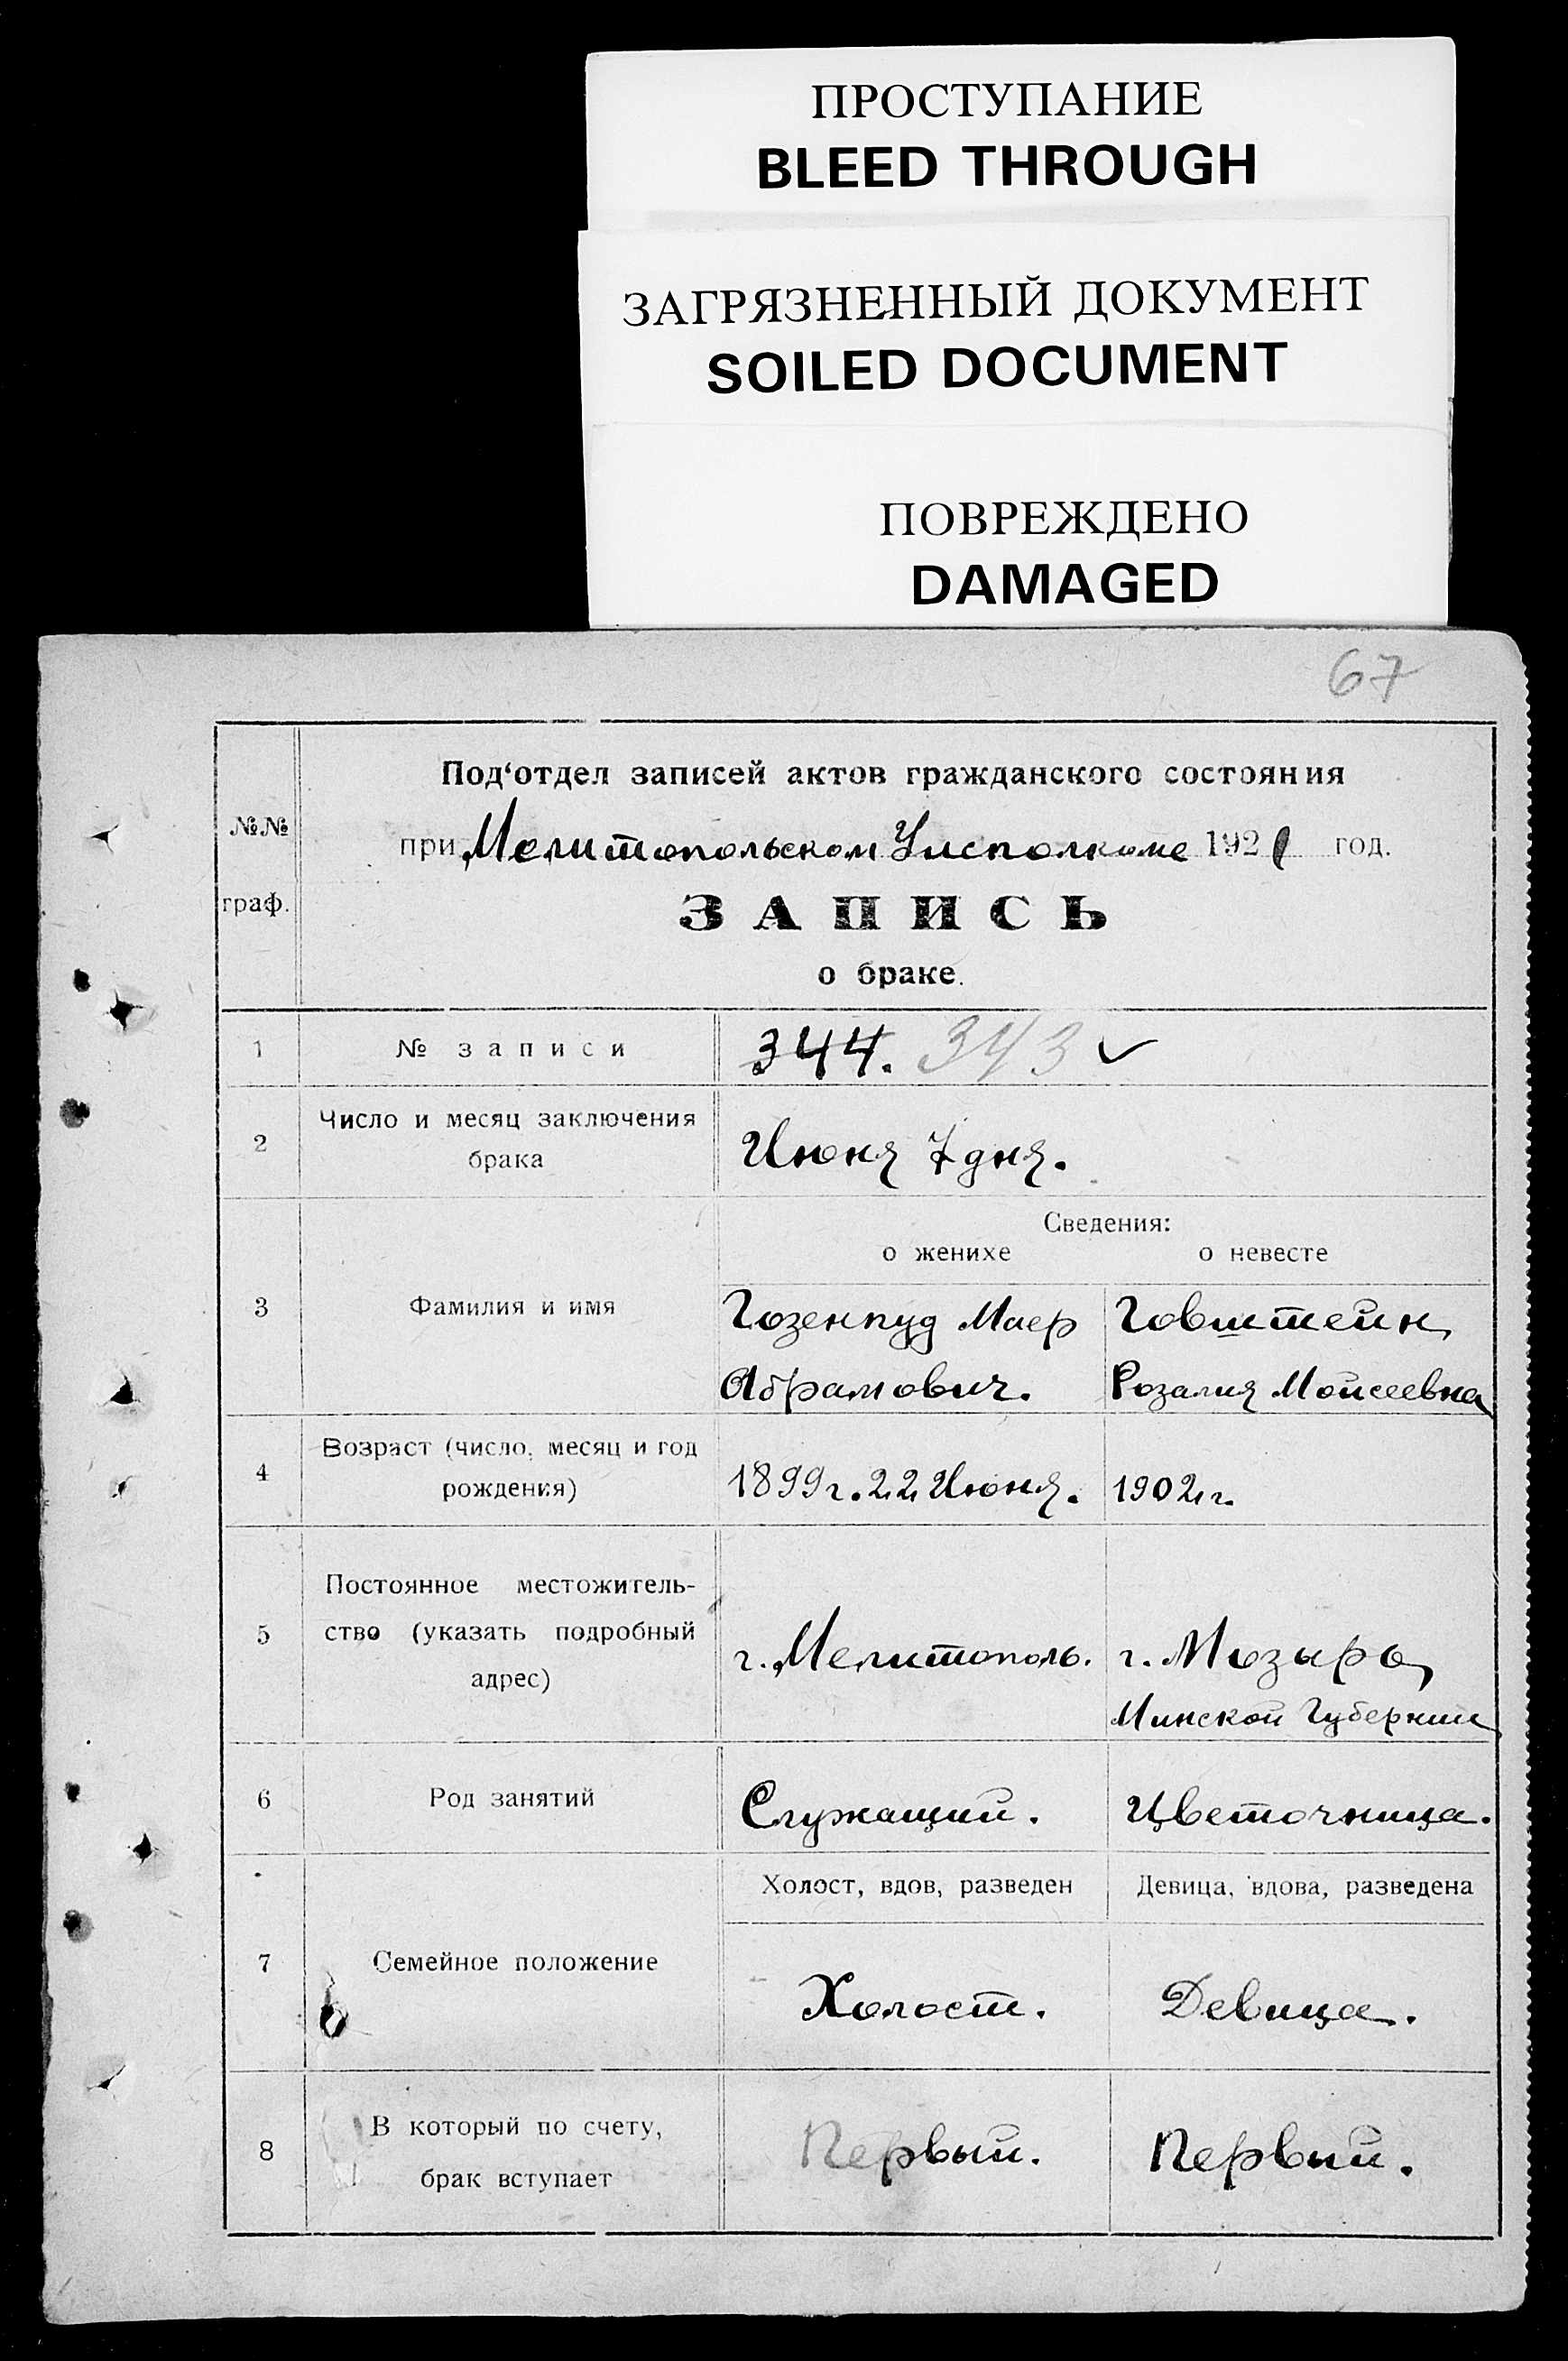 ПРОСТУПАНИЕ
BLEED THROUGH
ЗАГРЯЗНЕННЫЙ ДОКУМЕНТ
SOILED DOCUMENT
ПОВРЕЖДЕНО
DAMAGED
67
№№
граф.
Под‘отдел записей актов гражданского состояния
при Мелитопольском Уисполкоме 1921 год.
ЗАПИСЬ
о браке.
1
№ записи
344. 343 ✓
2
Число и месяц заключения
брака
Июня 7 дня.
Сведения:
о женихе
о невесте
3
Фамилия и имя
Гозенпуд Маер
Абрамович.
Говштейн
Розалия Мойсеевна
4
Возраст (число, месяц и год
рождения)
1899 г. 22 Июня.
1902 г.
5
Постоянное местожитель-
ство (указать подробный
адрес)
г. Мелитополь.
г. Мозырь
Минской Губернии
6
Род занятий
Служащий.
Цветочница.
7
Семейное положение
Холост, вдов, разведен
Девица, вдова, разведена
Холост.
Девица.
8
В который по счету,
брак вступает
Первый.
Первый.